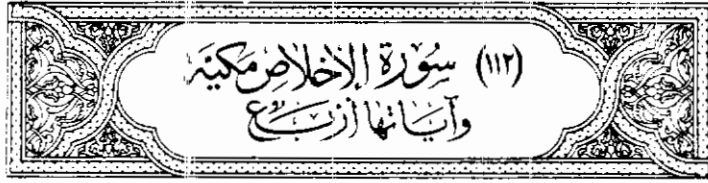 (١١٢) سُورَةُ الإِخْلَاصِ مَكِيَّة
وَآيَاتُهَا أَرْبَع